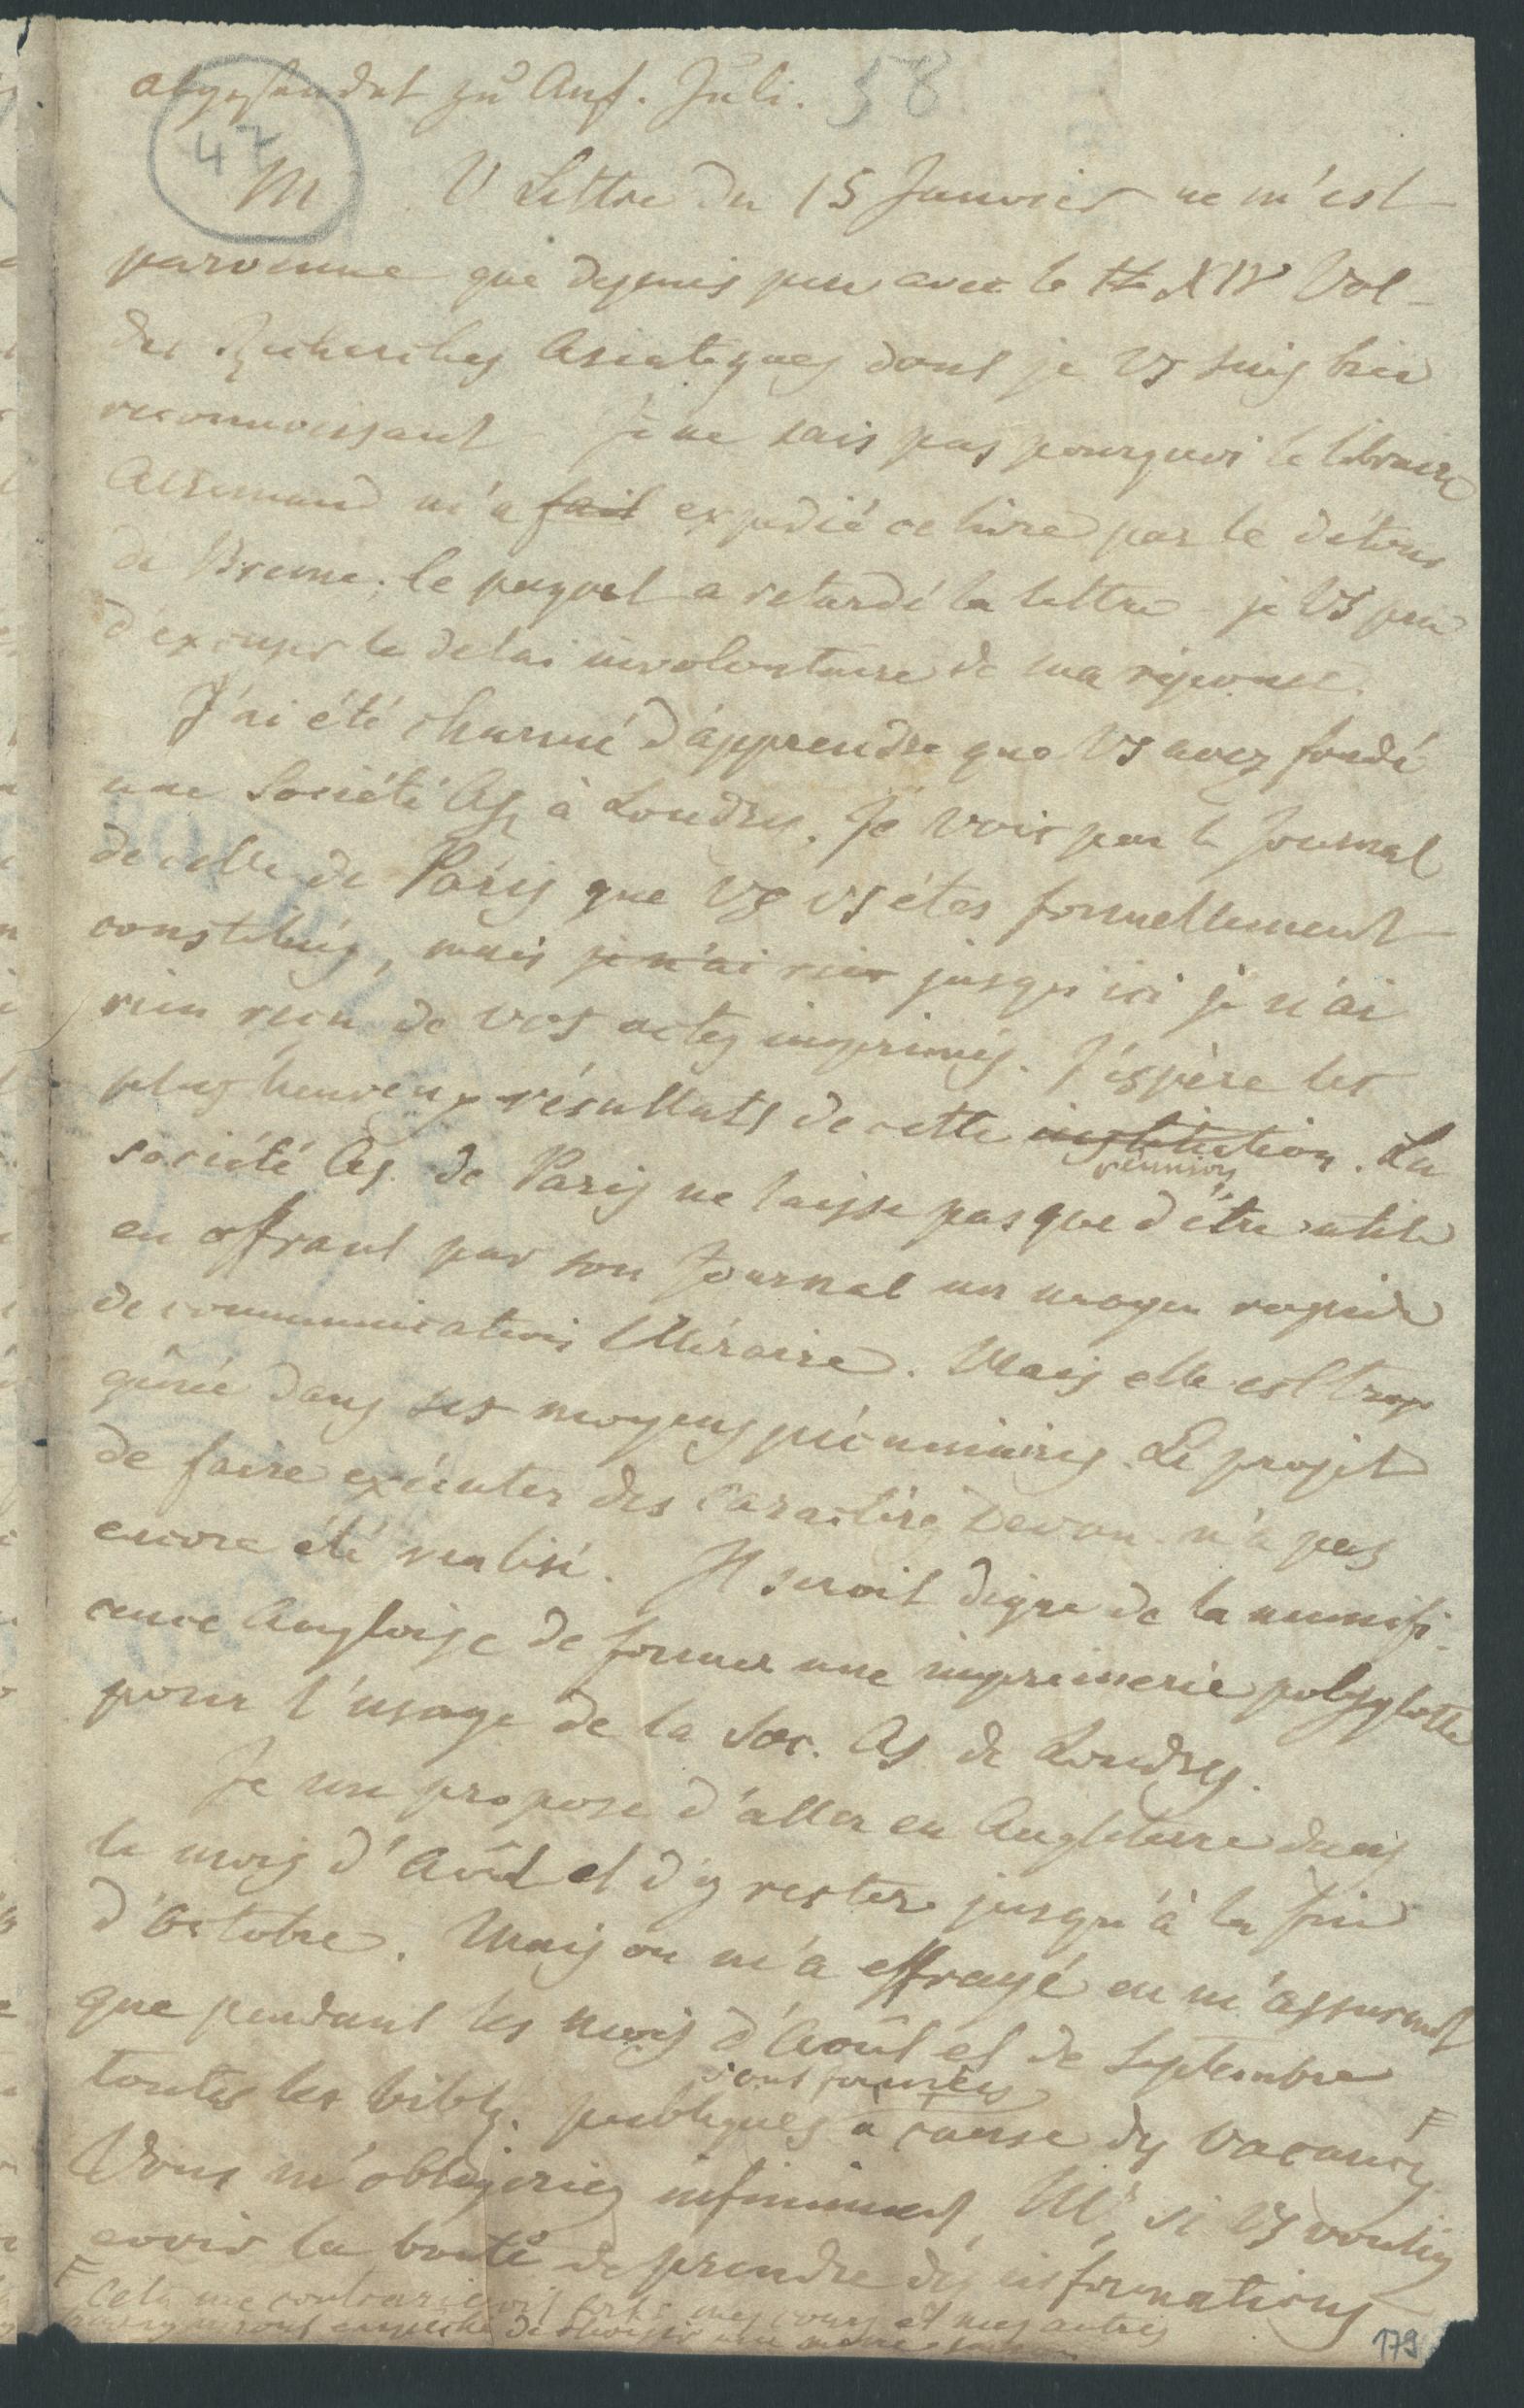 abgesendet zu Anf. Juli. 58
47
M V Lettre du 15 Janvier ne m'est
parvenue que depuis peu avec le XIV Vol
des Recherches Asiatiques dont je VS suis bien
reconnoissant Je ne sais pas pourquoi le libraire
Ackermann m'a fait expedié ce livre par le détour
de Breme; le paquet a retardé la lettre – je VS prie
d'excuser le delai involontaire de ma réponse.
J'ai été charmé d'apprendre que VS avez fondé
une Société As. à Londres. Je vois par le Journal
de celle de Paris que VS VS êtes formellement
constitués, mais je n'ai rien jusqu'ici je n'ai
rien reçu de vos actes imprimés. J'espère les
plus heureux résultats de cette institution. La
réunion
société As. de Paris ne laisse pas que d'être utile
en offrant par son Journal un moyen rapide
de communication littéraire. Mais elle est trop
gênée dans ses moyens pécuniaires. Le projet
de faire exécuter des caractères Devan. n'a pas
encore été realisé. Il seroit digne de la munifi-
cence Angloise de former une imprimerie polyglotte
pour l'usage de la Soc. As. de Londres.
Je me propose d'aller en Angleterre dans
le mois d'Août et d'y rester jusqu'à la fin
d'Octobre. Mais on m'a effrayé en m'assurant
que pendant les mois d'Août et de Septembre
sont fermées
toutes les bibl. publiques à cause des vacances F
Vous m'obligeriez infiniment, Mr, si VS vouliez
avoir la bonté de prendre des informations
F Cela me contrarieroit fort: mes cours et mes autres
travaux m'ont empêché de choisir une autre saison
179